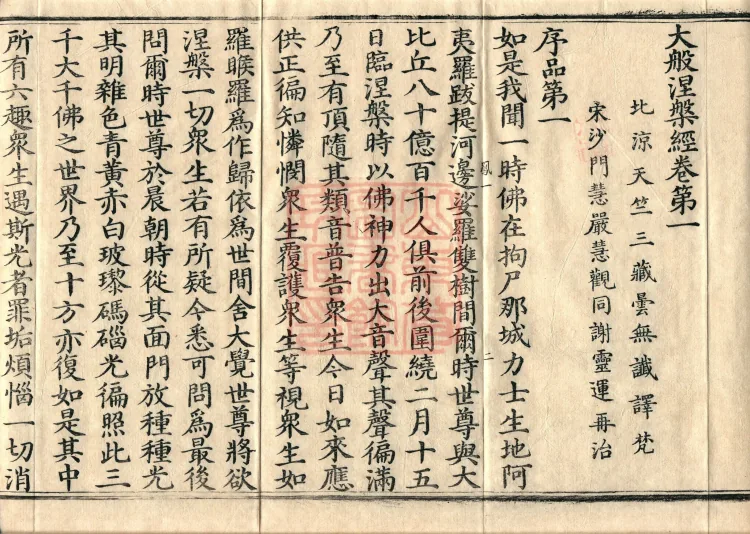 大般涅槃經卷第一
北涼天竺三藏曇無讖譯梵
宋沙門慧嚴慧觀同謝靈運再治
序品第一
如是我聞一時佛在拘尸那城力士生地阿
夷羅跋提河邊娑羅雙樹間爾時世尊與大
鳳一
二
比丘八十億百千人俱前後圍繞二月十五
日臨涅槃時以佛神力出大音聲其聲徧滿
乃至有頂隨其類音普告衆生今日如來應
供正徧知憐憫衆生覆護衆生等視衆生如
羅睺羅爲作歸依爲世間舍大覺世尊將欲
涅槃一切衆生若有所疑今悉可問爲最後
問爾時世尊於晨朝時從其面門放種種光
其明雜色青黃赤白玻瓈碼碯光徧照此三
千大千佛之世界乃至十方亦復如是其中
所有六趣衆生遇斯光者罪垢煩惱一切消